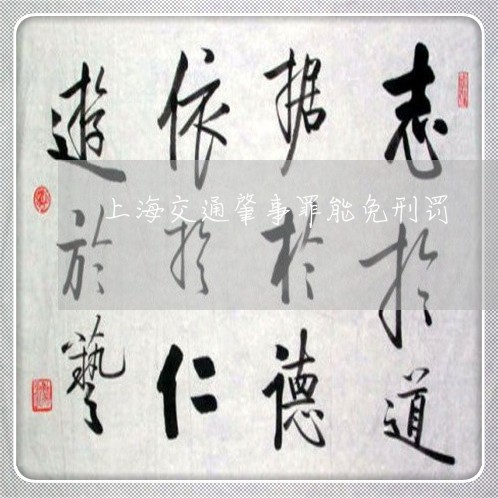 志於道
据於德
依於仁
遊於藝
上海交通肇事罪能免刑罚